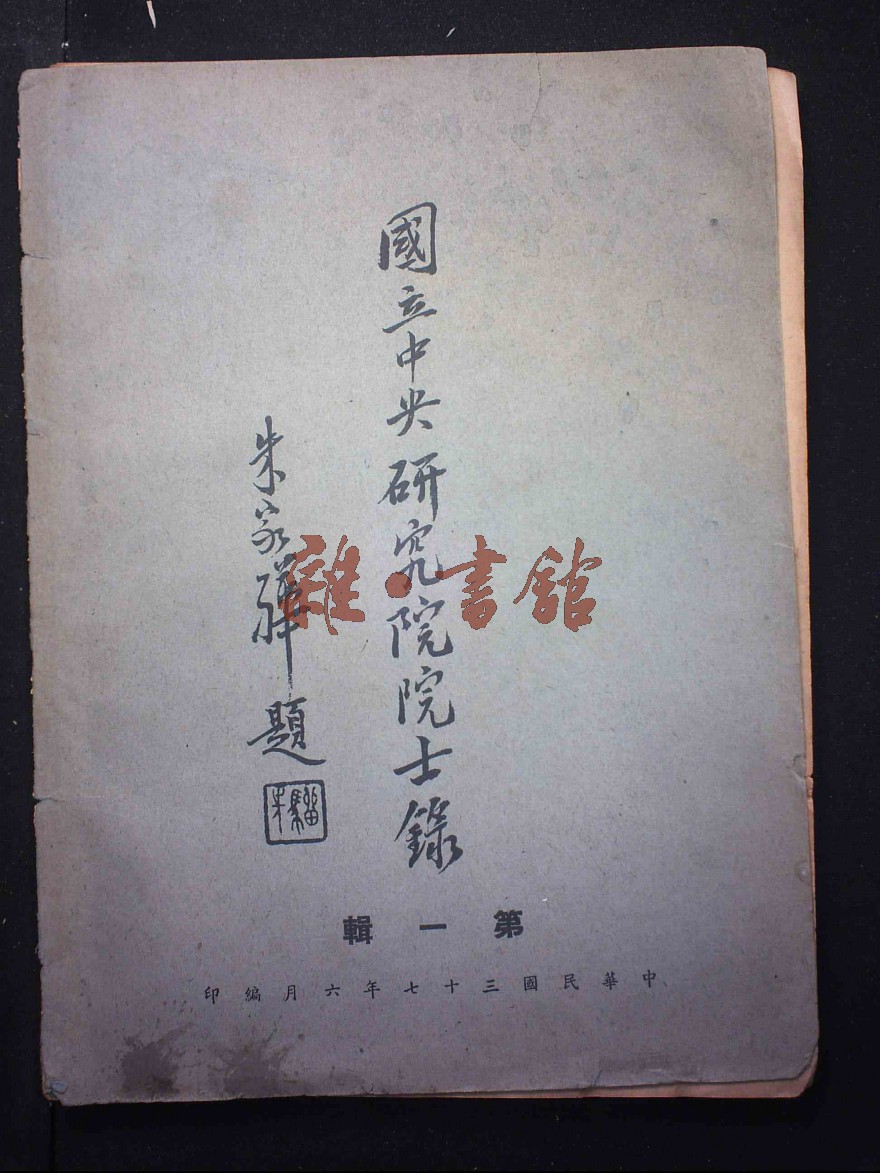 國立中央研究院院士錄
朱家驊題
朱騮
第一輯
中華民國三十七年六月編印
雜·書館